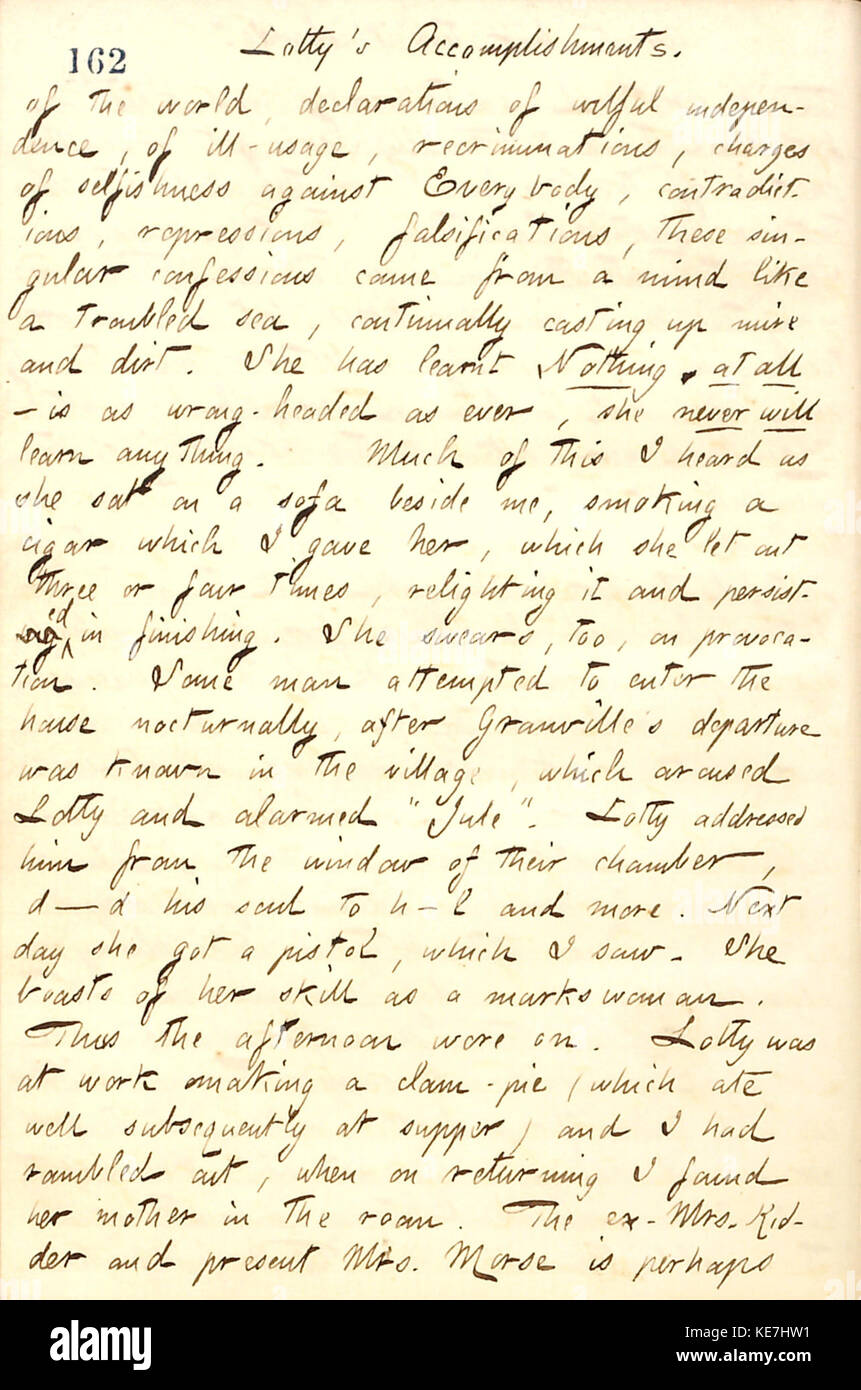 162
Lotty's Accomplishments.
of the world, declarations of wilful indepen-
dence, of ill-usage, recriminations, charges
of selfishness against Everybody, contradict-
ions, repressions, falsifications, these sin-
gular confessions came from a mind like
a troubled sea, continually casting up mire
and dirt. She has learnt Nothing at all
- is as wrong-headed as ever, she never will
learn anything. Much of this I heard as
she sat on a sofa beside me, smoking a
cigar which I gave her, which she let out
three or four times, relighting it and persist-
ed in finishing. She swears, too, on provoca-
tion. Some man attempted to enter the
house nocturnally, after Granville's departure
was known in the village, which aroused
Lotty and alarmed "Jule". Lotty addressed
him from the window of their chamber,
d—d his soul to h-l and more. Next
day she got a pistol, which I saw. She
boasts of her skill as a markswoman.
Thus the afternoon wore on. Lotty was
at work making a clam-pie (which ate
well subsequently at supper) and I had
rambled out, when on returning I found
her mother in the room. The ex-Mrs. Kid-
der and present Mrs. Morse is perhaps
alamy
Image ID: KE7HW1
www.alamy.com